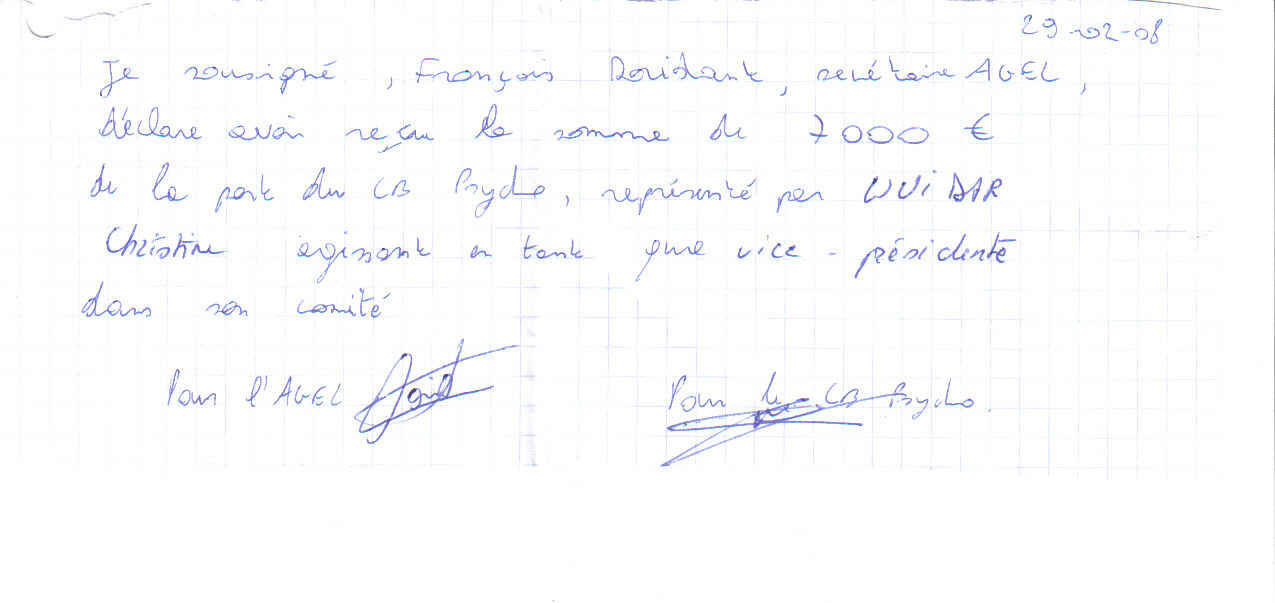 29-02-08
Je soussigné, François Doridant, secrétaire AGEL,
déclare avoir reçu la somme de 7000 €
de la part du CB Psycho, représenté par WUIDAR
Christine agissant en tant que vice-présidente
dans son comité
Pour l'AGEL Pour le CB Psycho.